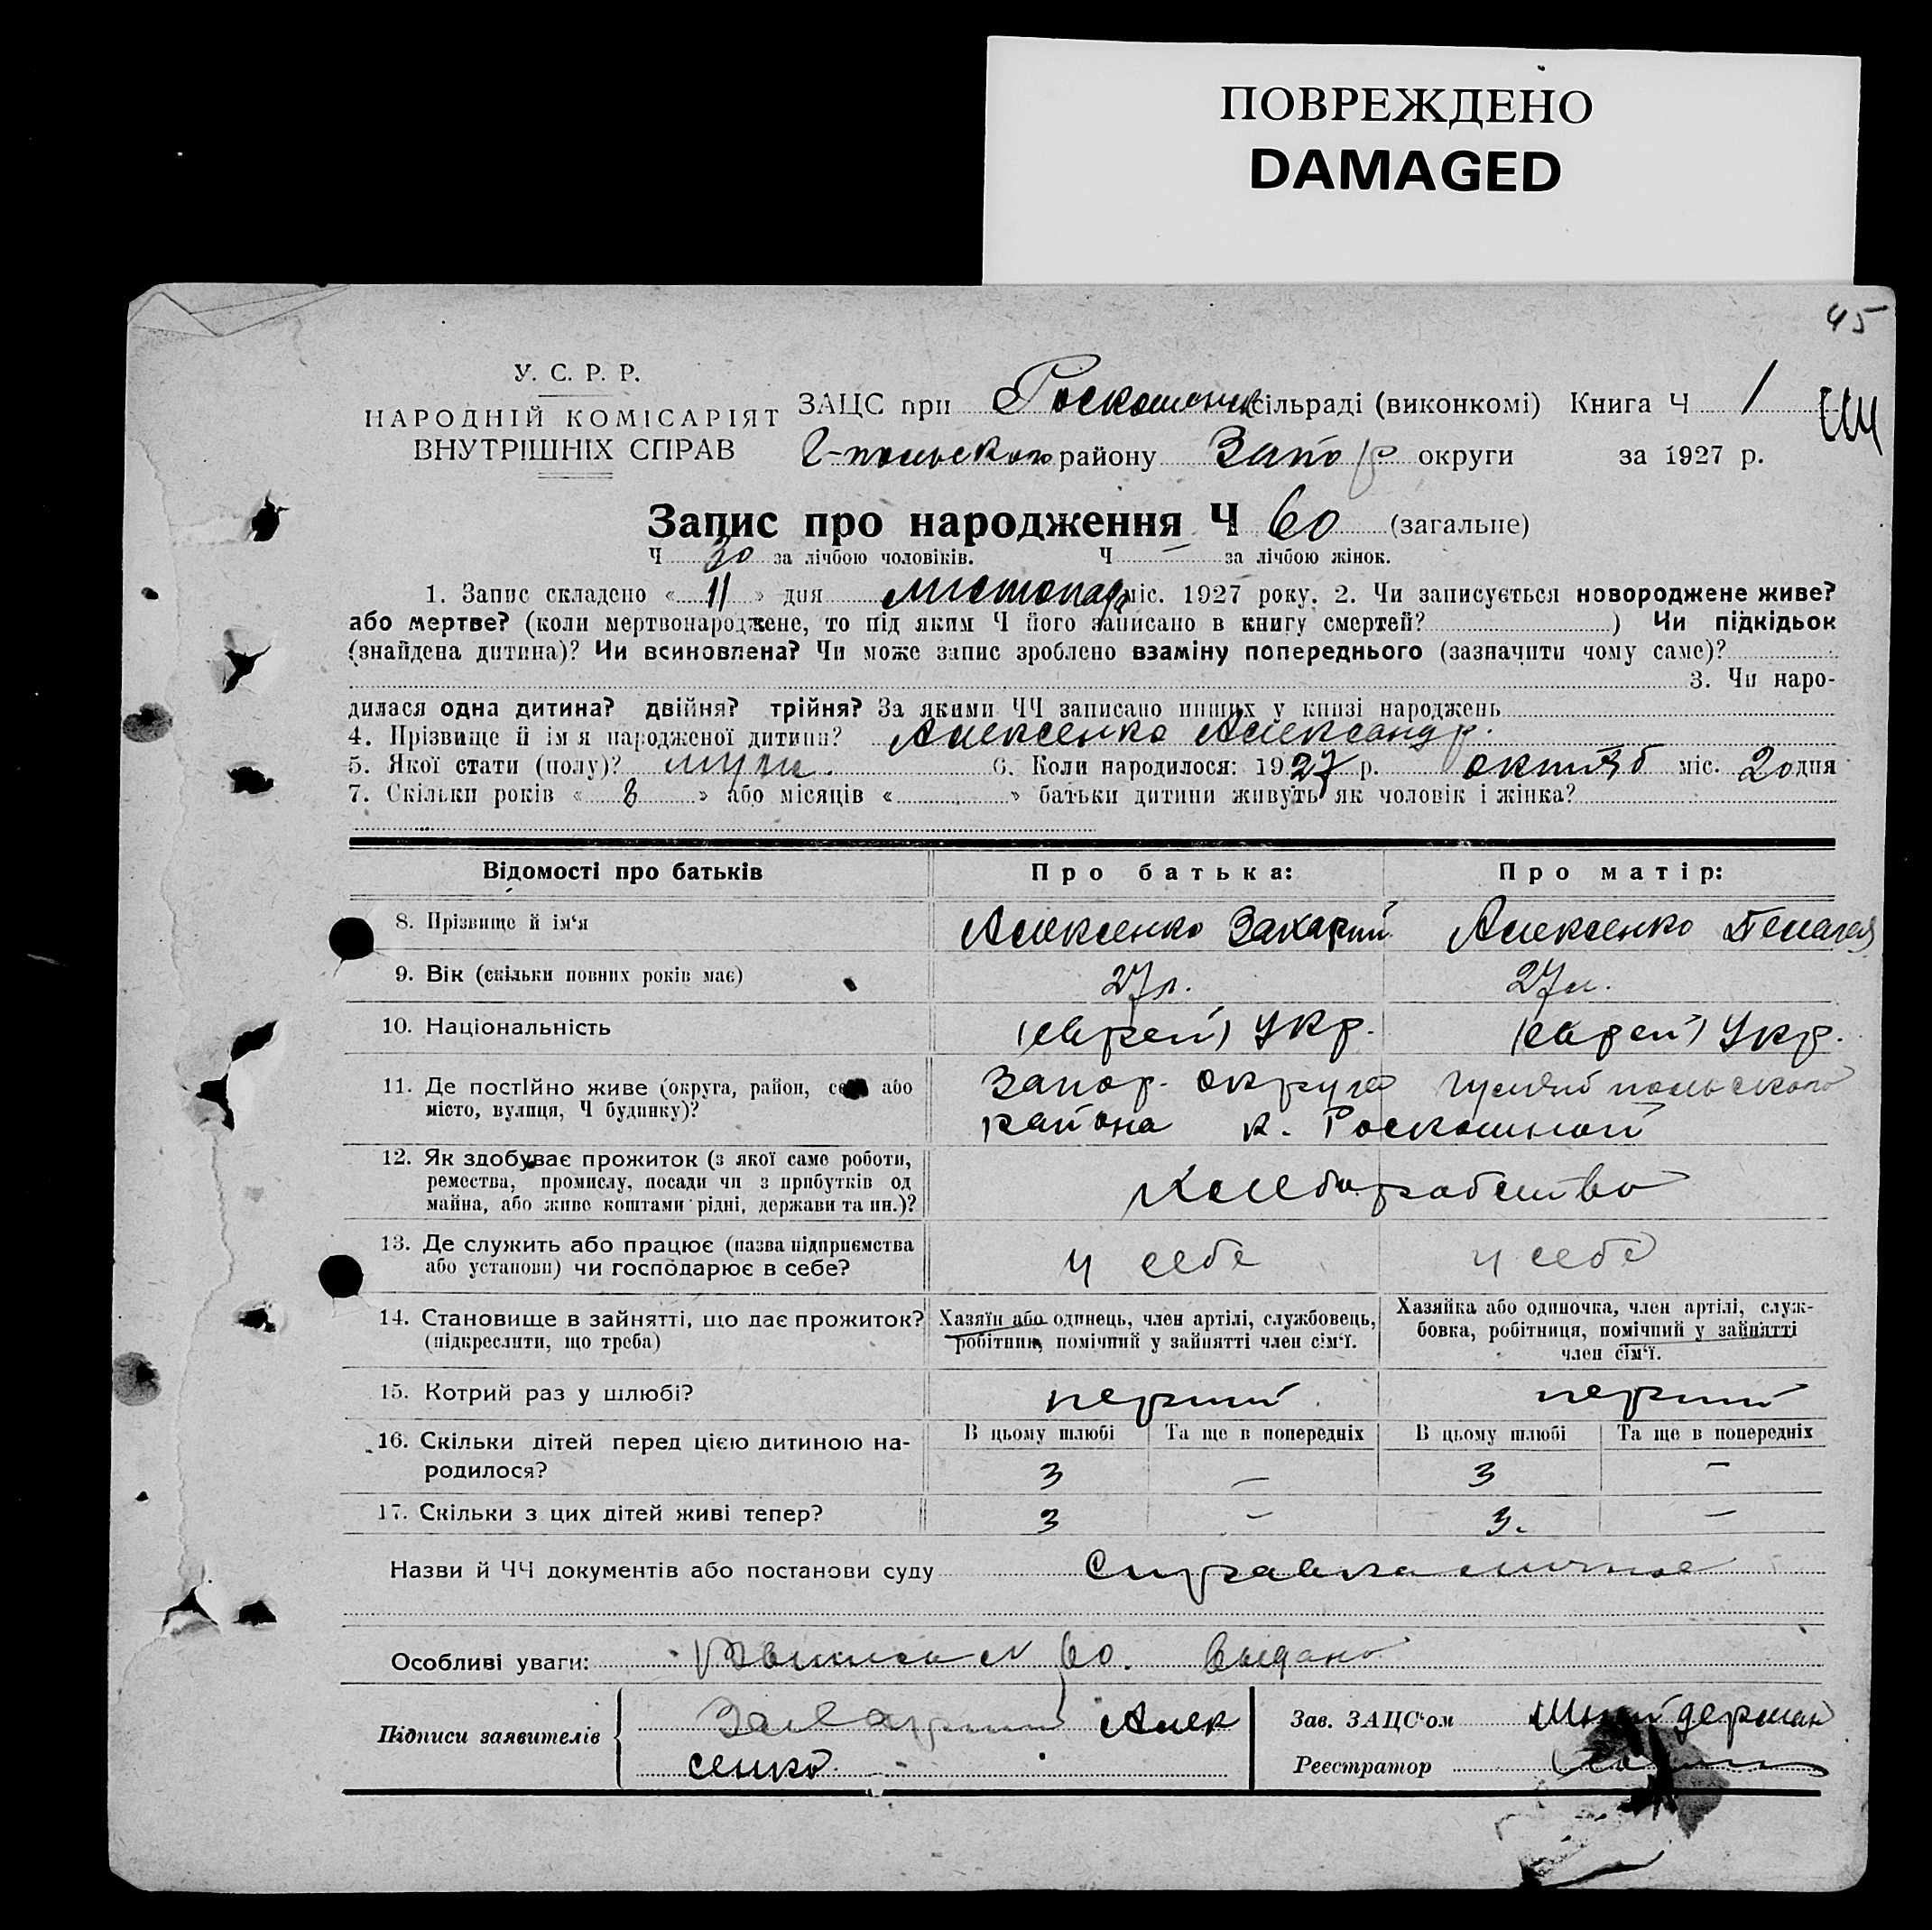 ПОВРЕЖДЕНО
DAMAGED
45
У. С. Р. Р.
НАРОДНІЙ КОМІСАРІЯТ
ВНУТРІШНІХ СПРАВ
ЗАЦС при Роскошенск сільраді (виконкомі) Книга Ч 1
Г-польского району Запор округи за 1927 р.
Запис про народження Ч 60 (загальне)
Ч 30 за лічбою чоловіків. Ч — за лічбою жінок.
1. Запис складено « 11 » дня листопад міс. 1927 року. 2. Чи записується новороджене живе?
або мертве? (коли мертвонароджене, то під яким Ч його записано в книгу смертей? ) Чи підкідьок
(знайдена дитина)? Чи всиновлена? Чи може запис зроблено взаміну попереднього (зазначити чому саме)?
3. Чи наро-
дилася одна дитина? двійня? трійня? За якими ЧЧ записано инших у книзі народжень
4. Прізвище й ім я народженої дитини? Алексенко Александр.
5. Якої стати (полу)? муж. 6. Коли народилося: 1927 р. октяб міс. 20 дня
7. Скільки років « 8 » або місяців « » батьки дитини живуть як чоловік і жінка?
Відомості про батьків Про батька: Про матір:
8. Прізвище й ім'я Алексенко Захарий Алексенко Пелагея
9. Вік (скільки повних років має) 27 л. 27 л.
10. Національність (еврей) Укр. (еврей) Укр.
11. Де постійно живе (округа, район, село або Запор. округа Гуляйпольского
місто, вулиця, Ч будинку)? района к. Роскошной
12. Як здобуває прожиток (з якої саме роботи,
ремества, промислу, посади чи з прибутків од Хлеборобство
майна, або живе коштами рідні, держави та ин.)?
13. Де служить або працює (назва підприємства
або установи) чи господарює в себе? у себе у себе
14. Становище в зайнятті, що дає прожиток? Хазяїн або одинець, член артілі, службовець, Хазяйка або одиночка, член артілі, служ-
(підкреслити, що треба) робітник, помічний у зайнятті член сім'ї. бовка, робітниця, помічний у зайнятті
член сім'ї.
15. Котрий раз у шлюбі? перший перший
16. Скільки дітей перед цією дитиною на- В цьому шлюбі Та ще в попередніх В цьому шлюбі Та ще в попередніх
родилося? 3 — 3 —
17. Скільки з цих дітей живі тепер? 3 — 3. —
Назви й ЧЧ документів або постанови суду Справка
Особливі уваги: N 60. выдано
Підписи заявителів Захарий Алек
сенко
Зав. ЗАЦС'ом Шнайдерман
Реєстратор